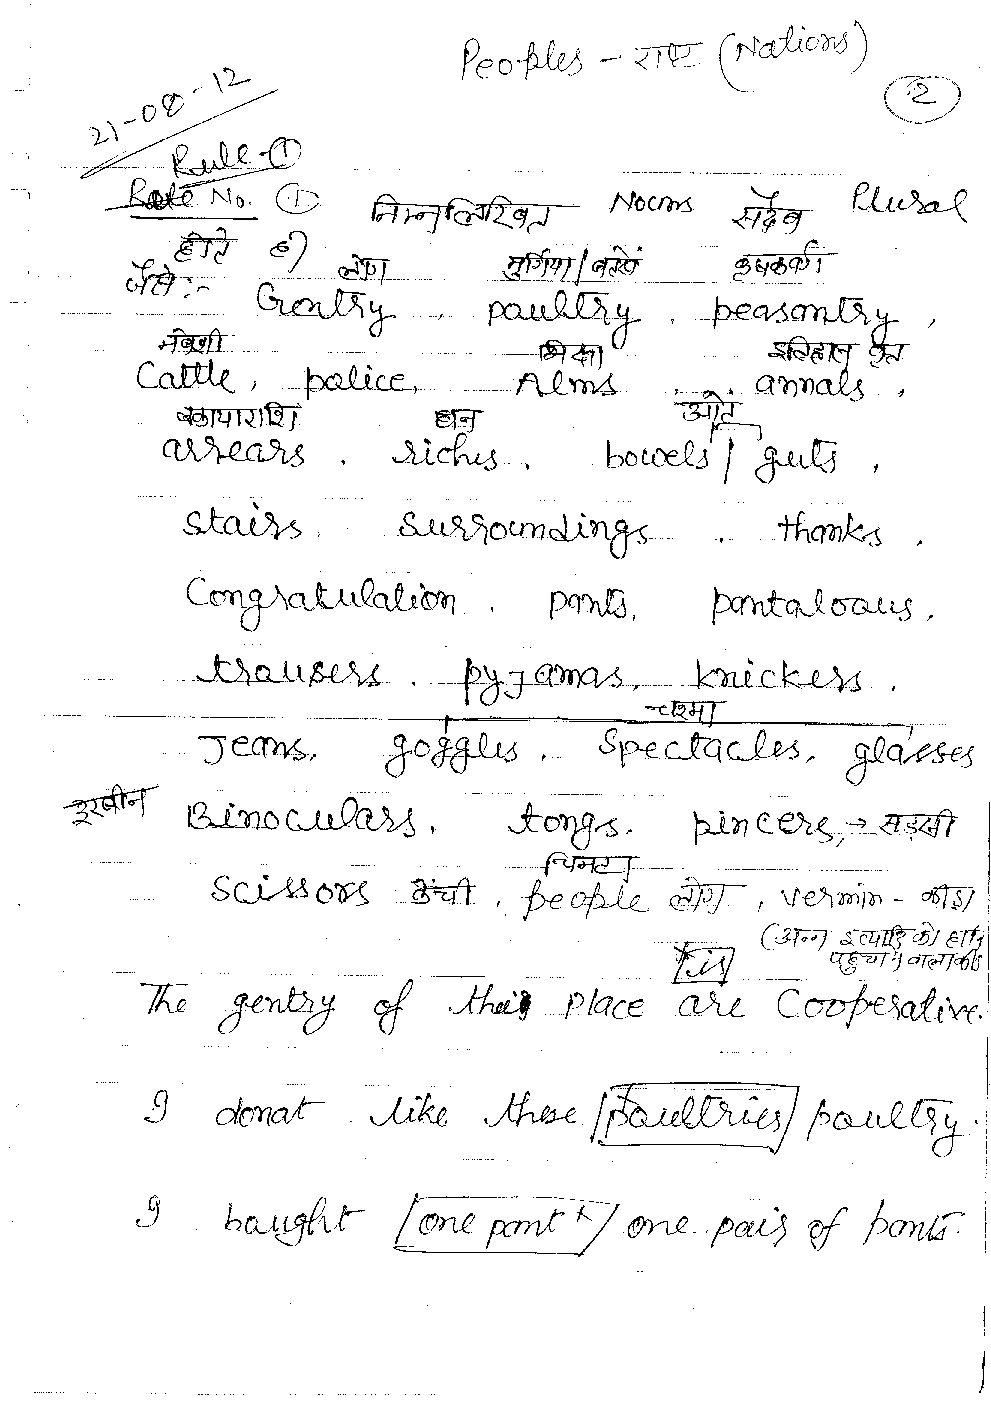 Peoples - राष्ट्र (Nations)
2
21-08-12
Rule-①
Rule No. ① निम्नलिखित Nouns सदैव Plural
होते है।
लोग मुर्गिया/बतखें कृषकवर्ग
जैसे:- Gentry, paultry, peasantry,
मवेशी भिक्षा इतिहास वृत
Cattle, police, Alms, annals,
बकायाराशि धन आंत
arrears, riches, bowels/guts,
Stairs, Surroundings, thanks,
Congratulation, pants, pantaloaus,
trousers, pyjamas, knickers,
चश्मा
Jeans, goggles, Spectacles, glasses
दूरबीन Binoculars, tongs, pincers, → सड़सी
चिमटा
Scissors कैंची, people लोग, vermin - कीड़ा
(अन्न इत्यादि को हानि
पहुचाने वाला कीड़ा
is
The gentry of this place are Cooperative.
I donat like these /paultries/ paultry.
I baught /one pant x/ one pair of pants.